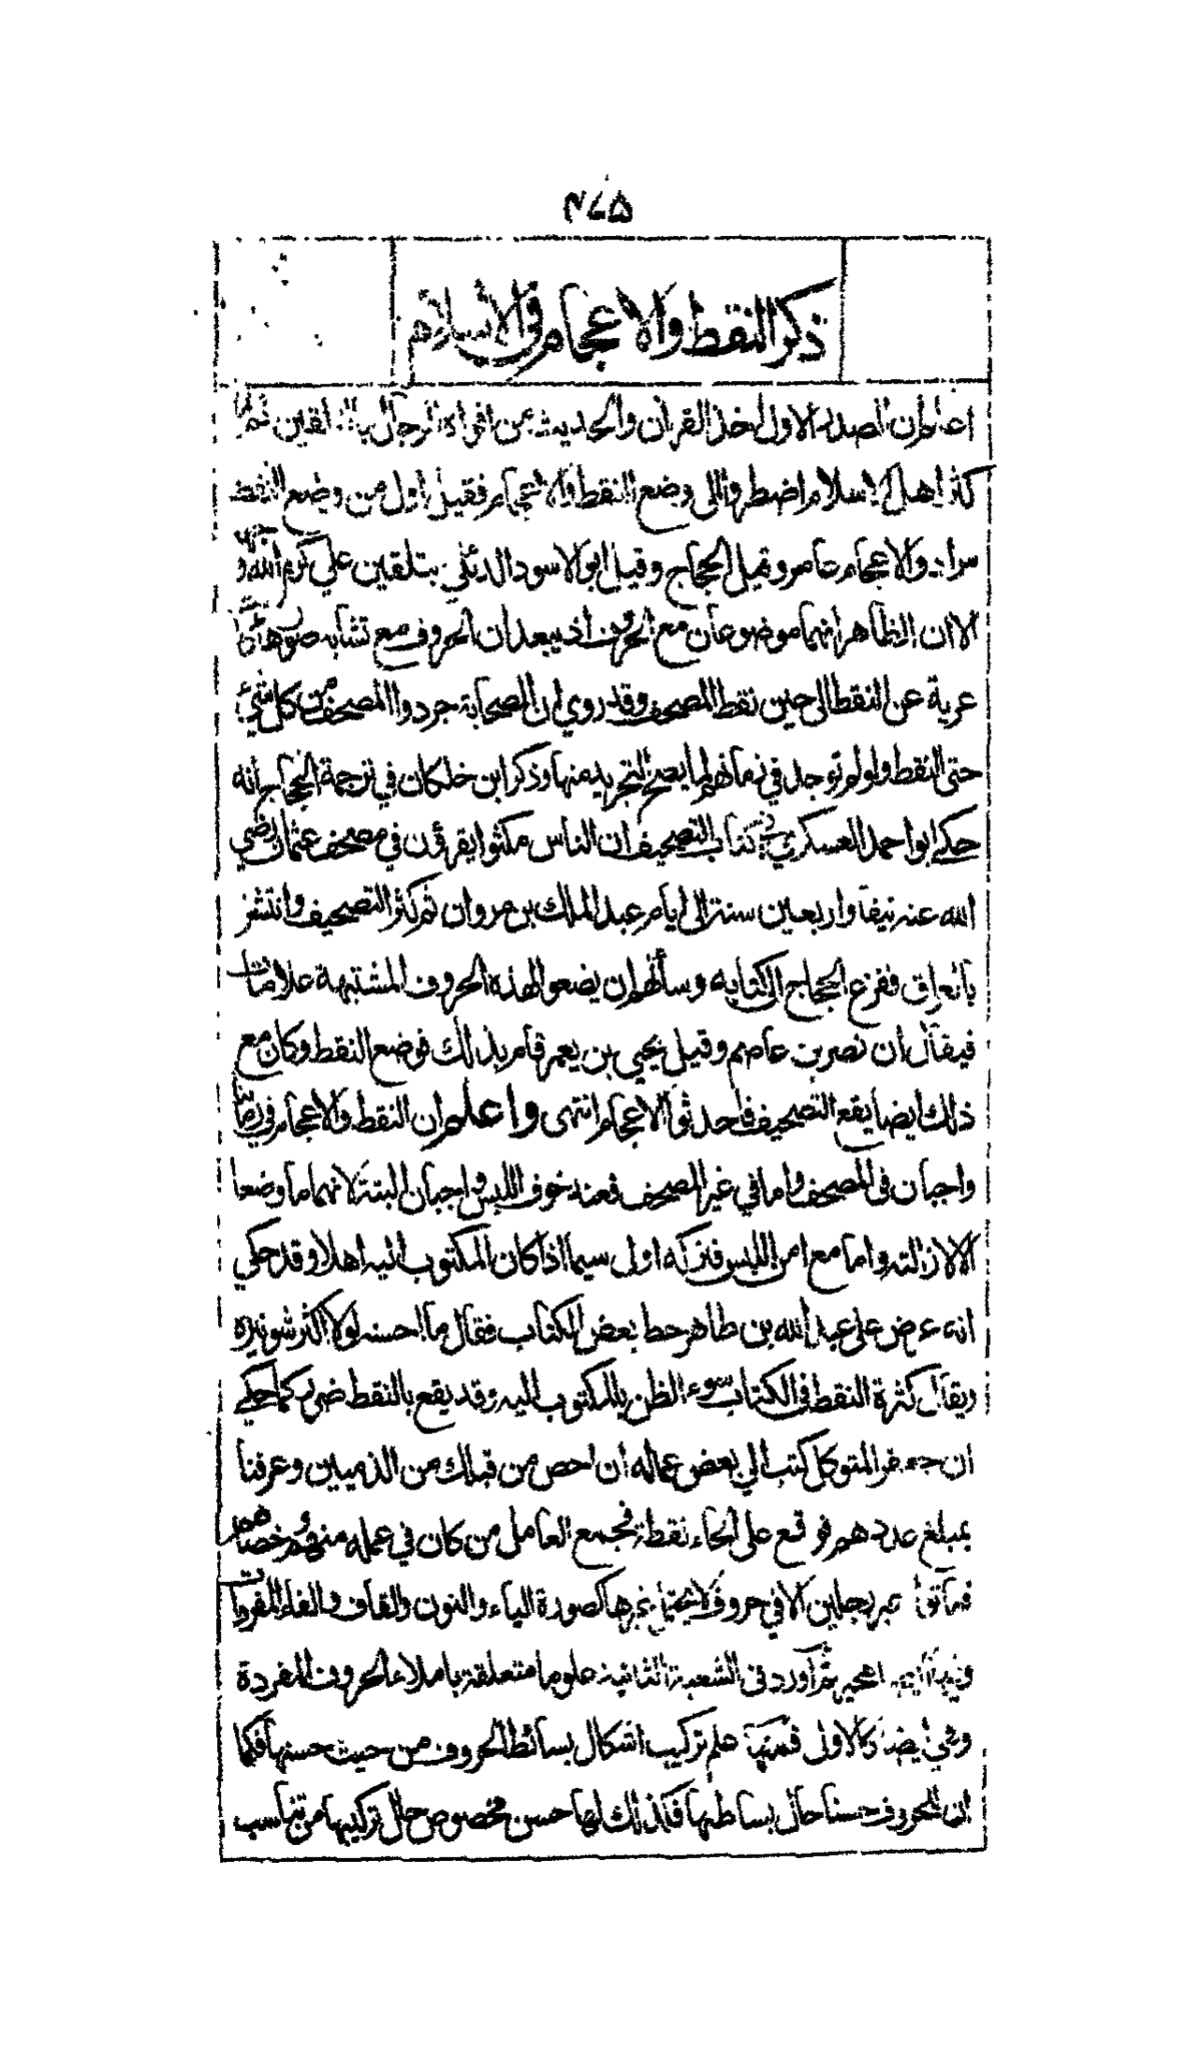 ٤٧٥
ذكر النقط والاعجام في الاسلام
اعلم ان الصدر الاول اخذ القران والحديث من افواه الرجال بالتلقين ثم لما
كثر اهل الاسلام اضطروا الى وضع النقط والاعجام فقيل اول من وضع النقط
مرار والاعجام عامر وقيل الحجاج وقيل ابو الاسود الدئلي بتلقين علي كرم الله وجهه
الا ان الظاهر انهما موضوعان مع الحروف اذ يبعد ان الحروف مع تشابه صورها كانت
عرية عن النقط الى حين نقط المصحف وقد روي ان الصحابة جردوا المصحف من كل شيئ
حتى النقط ولو لم توجد في زمانهم لما يصح التجريد منها وذكر ابن خلكان في ترجمة الحجاج انه
حكى ابو احمد العسكري في كتاب التصحيف ان الناس مكثوا يقرؤن في مصحف عثمان رضي
الله عنه نيفا واربعين سنة الى ايام عبد الملك بن مروان ثم كثر التصحيف وانتشر
بالعراق ففزع الحجاج الى كتابه وسألهم ان يضعوا لهذه الحروف المشتبهة علامات
فيقال ان نصر بن عاصم وقيل يحيى بن يعمر قام بذلك فوضع النقط وكان مع
ذلك ايضا يقع التصحيف فاحدثوا الاعجام انتهى واعلم ان النقط والاعجام في زماننا
واجبان في المصحف واما في غير المصحف فعند خوف اللبس واجبان البتة لانهما ما وضعا
الا لازالته واما مع امن اللبس فتركه اولى سيما اذا كان المكتوب اليه اهلا وقد حكي
انه عرض على عبد الله بن طاهر خط بعض الكتاب فقال ما احسنه لولا اكثر شونيزه
ويقال كثرة النقط في الكتاب سوء الظن بالمكتوب اليه وقد يقع بالنقط ضرر كما حكي
ان جعفر المتوكل كتب الى بعض عماله ان احص من قبلك من الذميين وعرفنا
بمبلغ عددهم فوقع على الحاء نقطة فجمع العامل من كان في عمله منهم وخصاهم
فماتوا غير رجلين الا في حروف لا يحتمل غيرها كصورة الياء والنون والقاف والفاء المفردات
وفيها ايضا مخير ثم اورد في الشعبة الثانية علوما متعلقة باملاء الحروف المفردة
وهي ايضا كالاولى فمنها علم تركيب اشكال بسائط الحروف من حيث حسنها فكما
ان للحروف حسنا حال بساطتها فكذلك لها حسن مخصوص حال تركيبها من تناسب